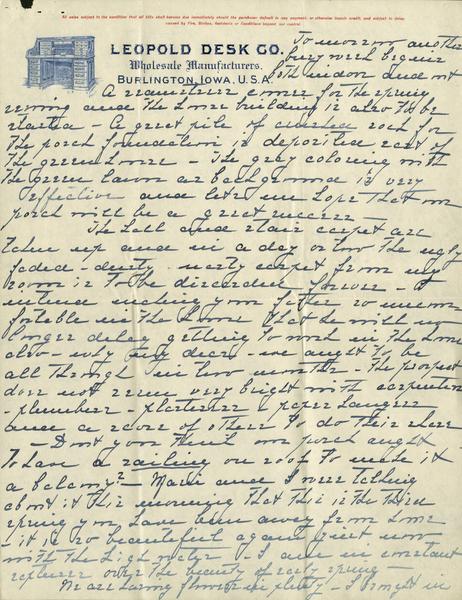 All sales subject to the condition that all bills shall become due immediately should the purchaser default in any payment, or otherwise impair credit, and subject to delay
caused by Fire, Strikes, Accidents or Conditions beyond our control.
LEOPOLD DESK CO.
Wholesale Manufacturers.
BURLINGTON, IOWA, U.S.A.
To morrow another
busy week begins
both indoor and out
A seamstress comes for the spring
sewing and the Lunse building is also to be
started - A great pile of crushed rock for
the porch foundation is deposited east of
the green house - The grey coloring with
the green lawn as background is very
effective and lets us hope that our
porch will be a great success -
The hall and stair carpet are
taken up and in a day or two the ugly
faded - dusty - nasty carpet from my
room is to be discarded forever - I
intend making your father so uncom
fortable in the house that he will no
longer delay getting to work in the house
also - why my dears - we ought to be
all through in two months - The prospect
does not seem very bright with carpenters
- plumbers - plasterers - paper hangers
and a score of others to do their share
- Dont you think our porch ought
to have a railing on roof to make it
a balcony? - Marie and I were talking
about it this morning that this is the third
spring you have been away from home
- it is so beautiful again just now
with the high water - I am in constant
raptures over the beauty of early spring -
We are having flowers in plenty - I brought in